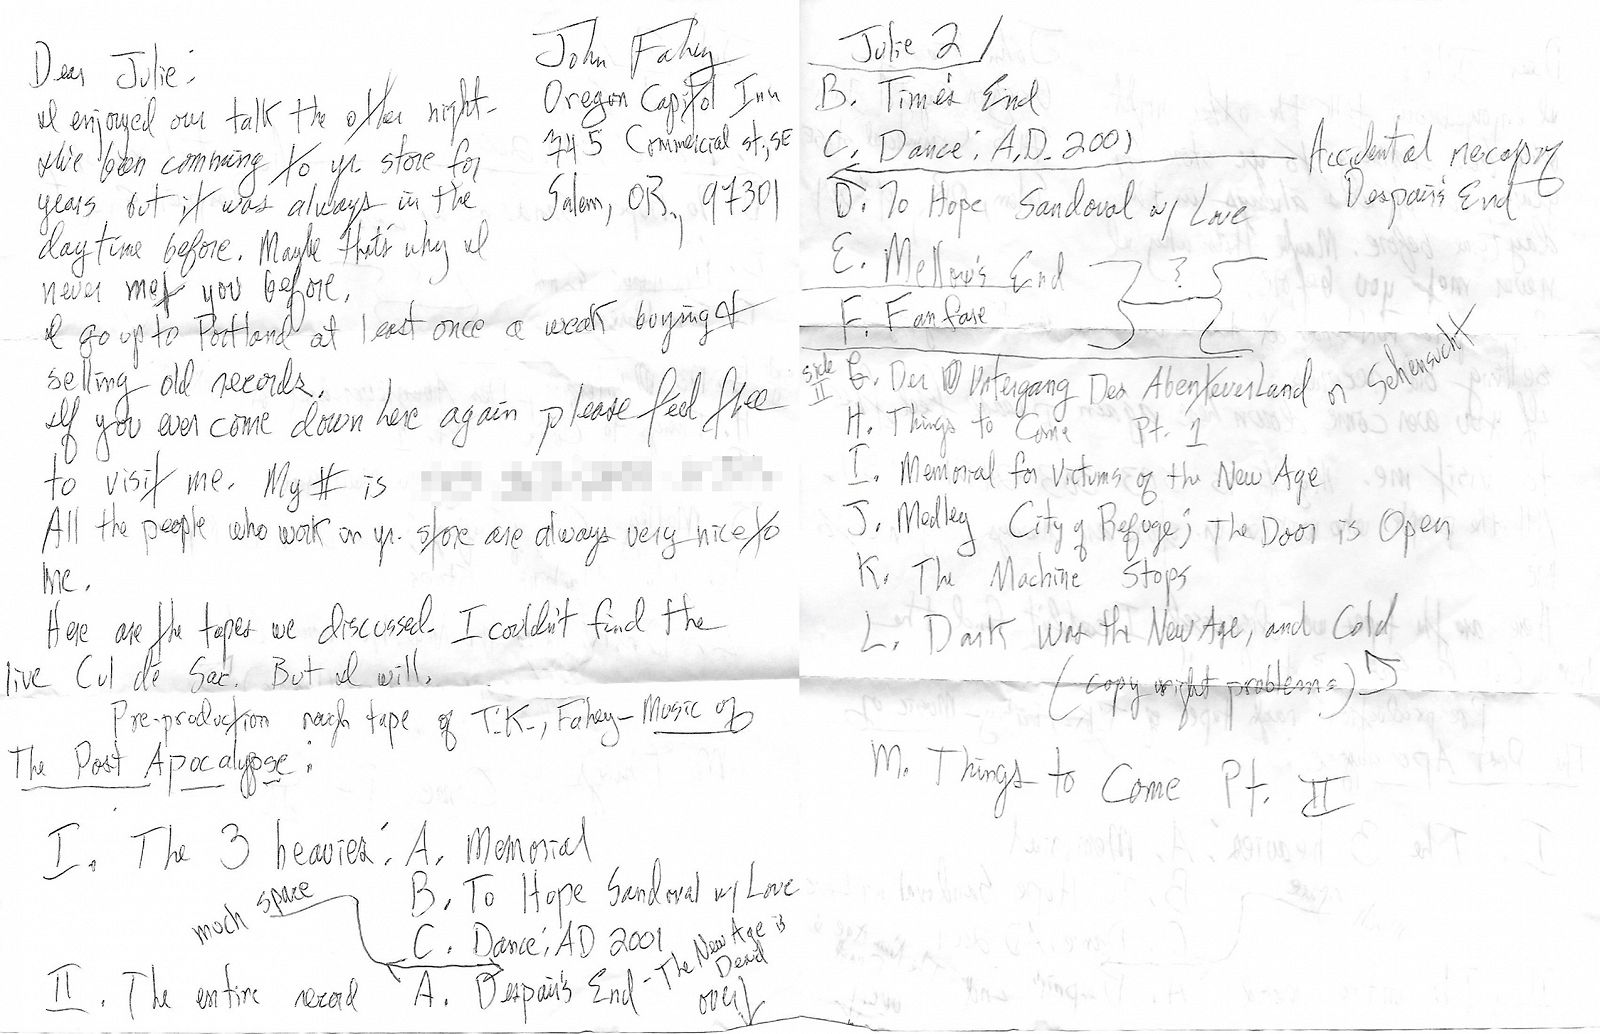 Dear Julie:
John Fahey
Oregon Capitol Inn
745 Commercial st., SE
Salem, OR., 97301
I enjoyed our talk the other night-
I've been comming to yr. store for
years but it was always in the
daytime before. Maybe that's why I
never met you before.
I go up to Portland at least once a weak buying &
selling old records.
If you ever come down here again please feel free
to visit me. My # is
All the people who work in yr. store are always very nice to
me.
Here are the tapes we discussed. I couldn't find the
live Cul de Sac. But I will.
Pre-production rough tape of T.K., Fahey- Music of
The Post Apocalypse:
I. The 3 heavies: A. Memorial
B. To Hope Sandoval w/ Love
much space
C. Dance: AD 2001
II. The entire record A. Despair's End - The New Age is
Dead
over
Julie 2/
B. Time's End
C. Dance: A.D. 2001
Accidental recap of
Despair's End
D. To Hope Sandoval w/ Love
E. Mellow's End
?
F. Fanfare
side II G. Der Untergang Des AbenteverLand or Sehensucht
H. Things to Come Pt. 1
I. Memorial for Victums of the New Age
J. Medley City of Refuge; The Door is Open
K. The Machine Stops
L. Dark was the New Age, and Cold
(copy wright problems)
M. Things to Come Pt. II